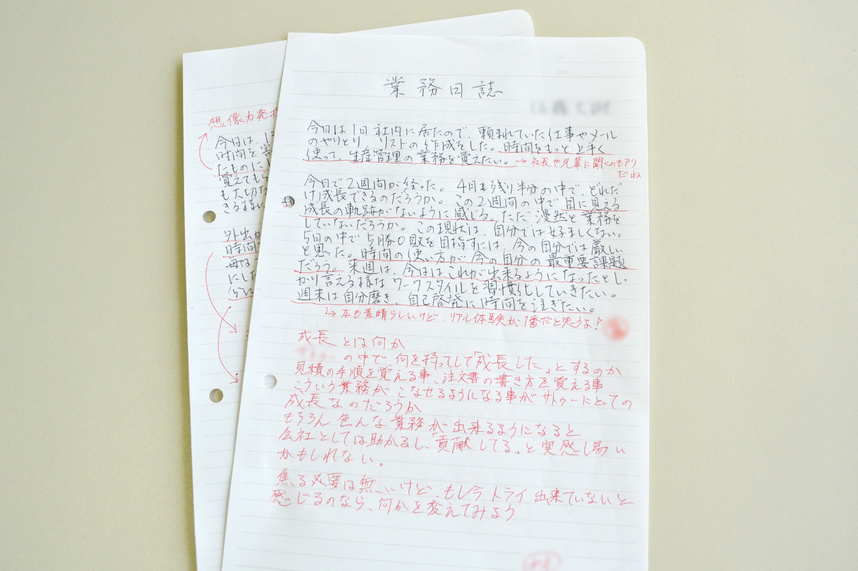 想像力発揮
今日は、1
時間を
たものに
覚えても
も大切な
きる様に
外出が
時間
毎な
にし
業務日誌
今日は1日社内に居たので、頼れていた仕事やメール
のやりとり リストの作成をした。時間をもっと上手く
使って、生産管理の業務を覚えたい。→社長や先輩に聞くのもアリ
だね
今日で2週間が経った。4月も残り半分の中で、どれだ
け成長できるのだろうか。この2週間の中で目に見える
成長の軌跡がないように感じる。ただ漫然と業務を
していないだろうか。この現状は、自分では好ましくない。
5日の中で5勝0敗を目指すには、今の自分では厳しい
と思った。時間の使い方が今の自分の最重要課題
だろう。来週は、今日はこれが出来るようになったとし、
かり言える様なワークスタイルを習慣化していきたい。
週末は自分磨き、自己啓発に時間を注ぎたい。
↳本も素晴らしいけど、リアル体験が1番だと思うよ!
成長とは何か
の中で何を持ってして「成長した。」とするのか
見積の手順を覚える事、注文書の書き方を覚える事
こういう業務がこなせるようになる事がサトゥーにとっての
成長なのだろうか
もちろん色んな業務が出来るようになると
会社としては助かるし、「貢献してる。」と実感し易い
かもしれない。
焦る必要は無いけど、もし今トライ出来ていないと
感じるのなら、何かを変えてみよう